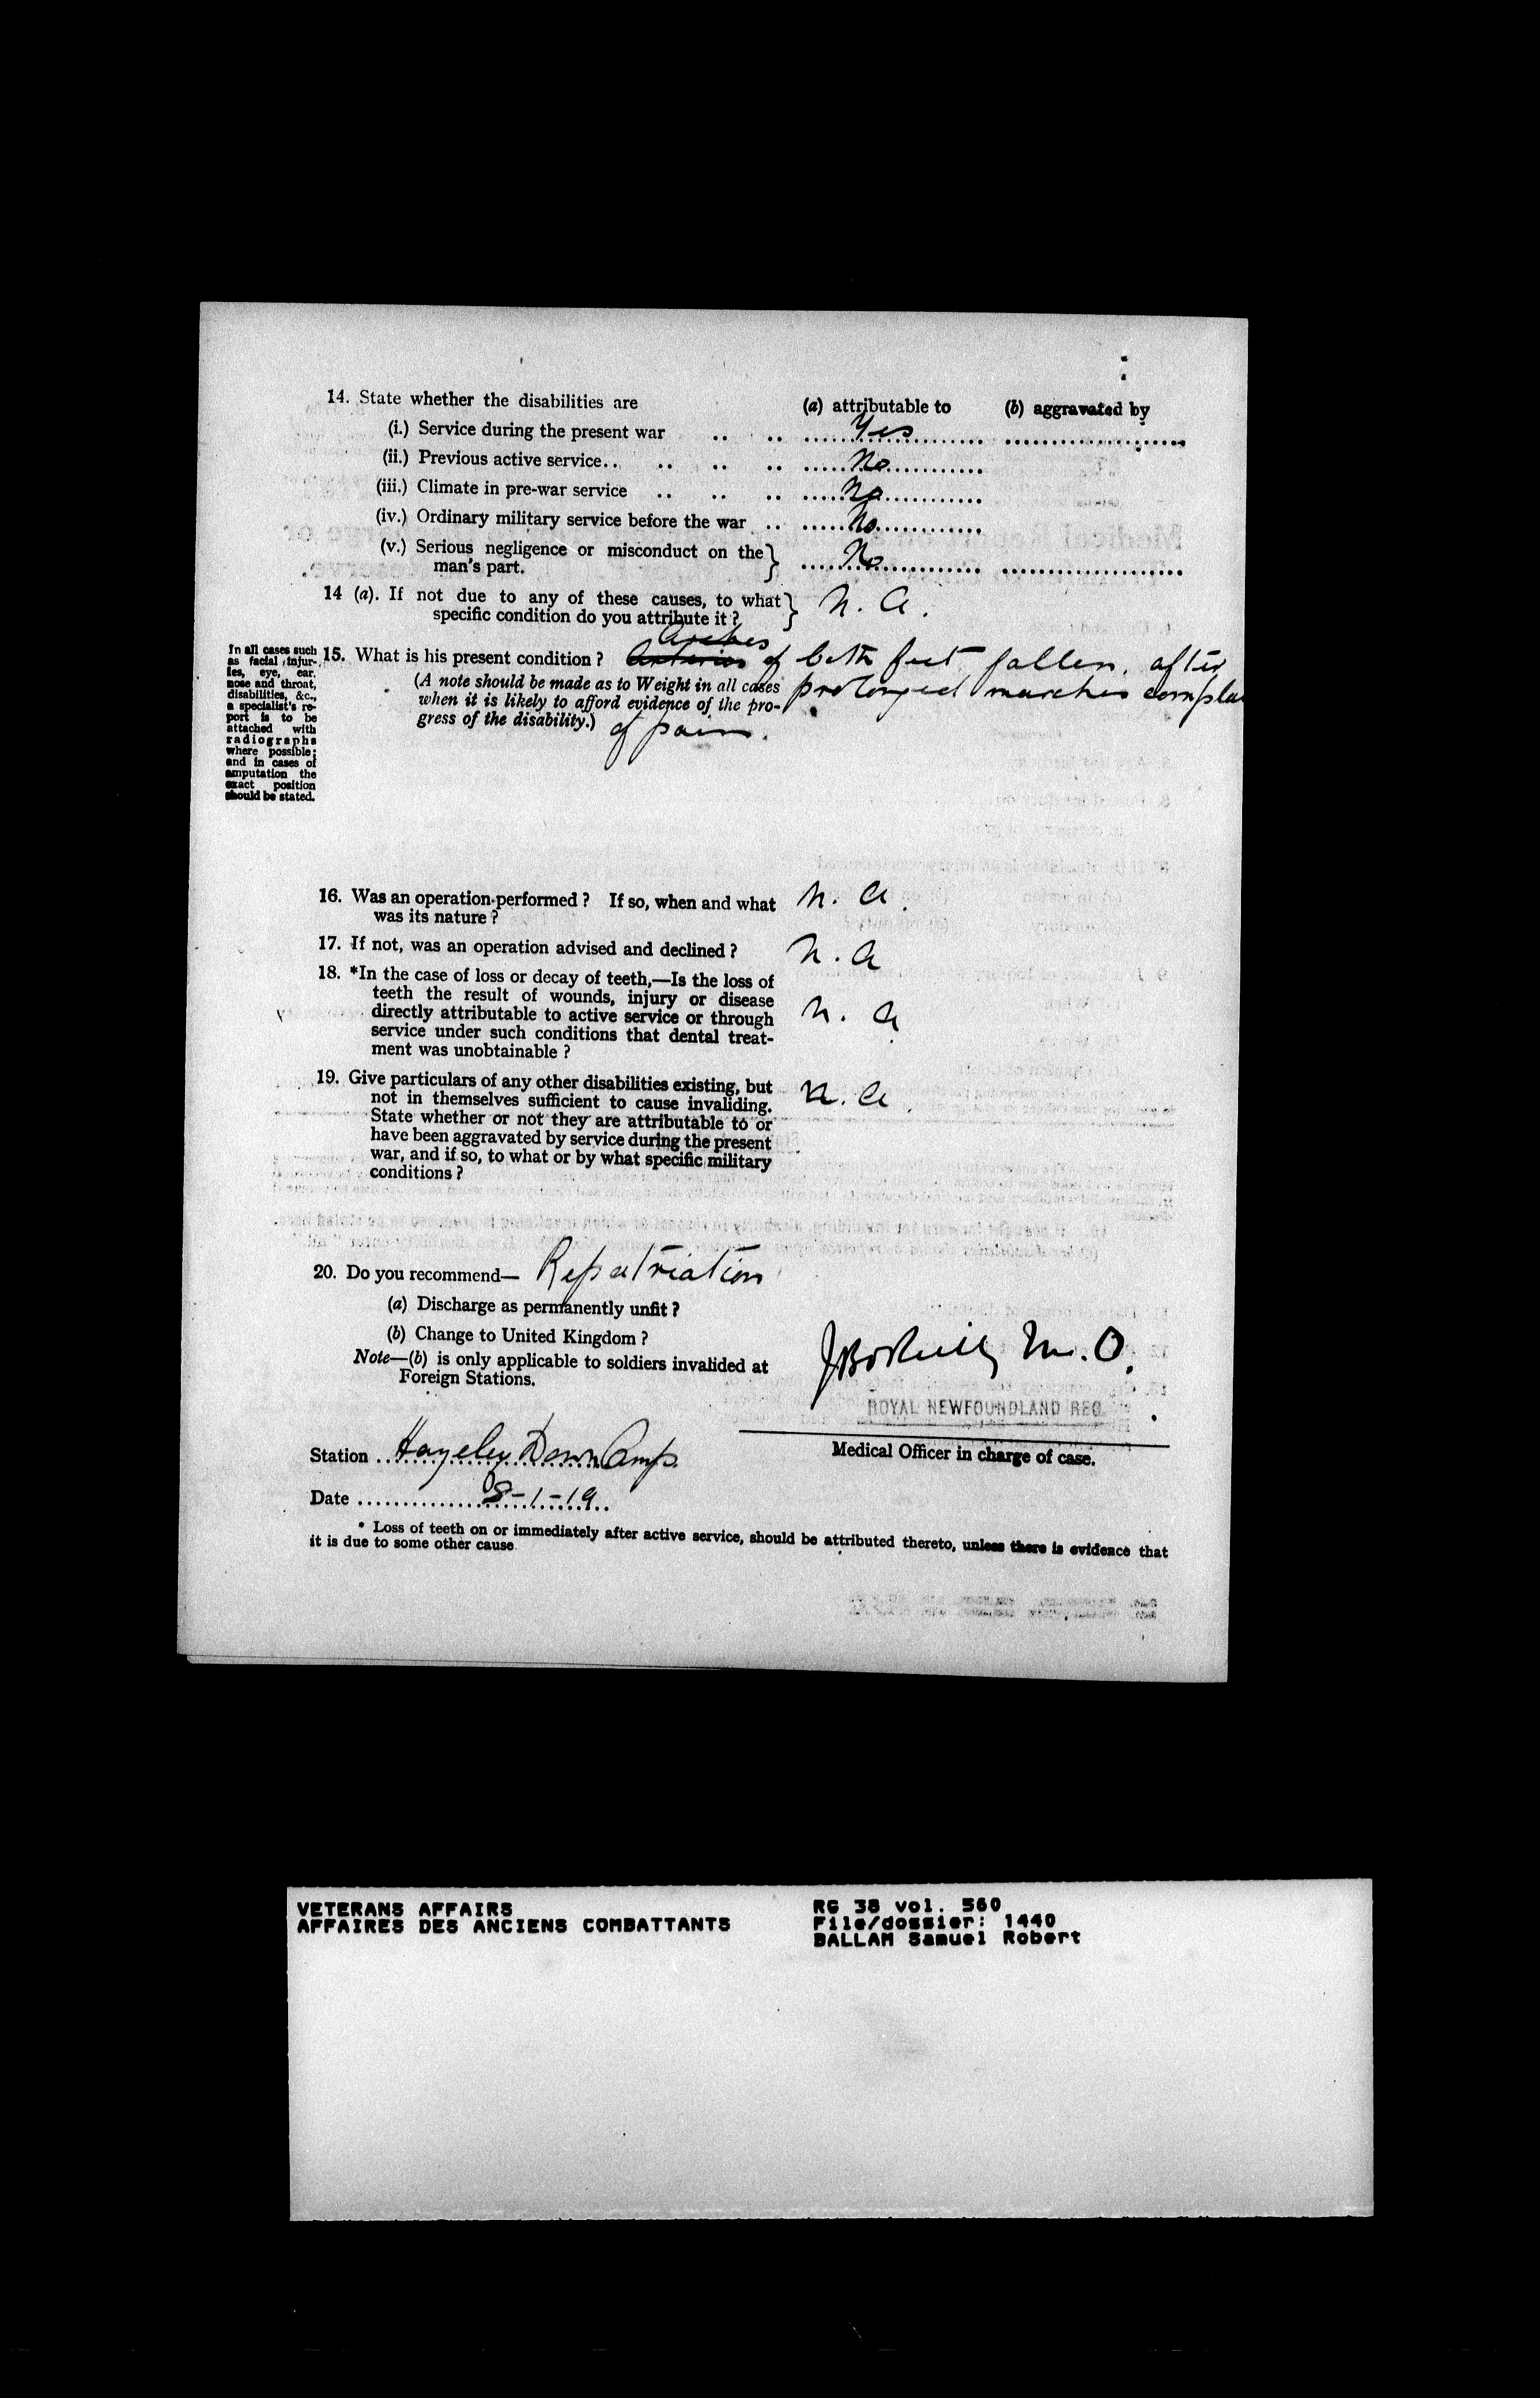 14. State whether the disabilities are (a) attributable to (b) aggravated by
(i.) Service during the present war .. .. Yes
(ii.) Previous active service.. .. .. .. No
(iii.) Climate in pre-war service .. .. .. No
(iv.) Ordinary military service before the war .. No
(v.) Serious negligence or misconduct on the man's part. No
14 (a). If not due to any of these causes, to what
specific condition do you attribute it? n. a.
In all cases such
as facial injur-
ies, eye, ear,
nose and throat,
disabilities, &c.,
a specialist's re-
port is to be
attached with
radiographs
where possible;
and in cases of
amputation the
exact position
should be stated.
Arches
15. What is his present condition? of both feet fallen. after
(A note should be made as to Weight in all cases prolonged marches complai
when it is likely to afford evidence of the pro-
gress of the disability.) of pain.
16. Was an operation performed? If so, when and what n. a.
was its nature?
17. If not, was an operation advised and declined? n. a
18. *In the case of loss or decay of teeth,—Is the loss of
teeth the result of wounds, injury or disease
directly attributable to active service or through n. a
service under such conditions that dental treat-
ment was unobtainable?
19. Give particulars of any other disabilities existing, but n. a.
not in themselves sufficient to cause invaliding.
State whether or not they are attributable to or
have been aggravated by service during the present
war, and if so, to what or by what specific military
conditions?
20. Do you recommend— Repatriation
(a) Discharge as permanently unfit?
(b) Change to United Kingdom?
Note—(b) is only applicable to soldiers invalided at
Foreign Stations.
M.O.
ROYAL NEWFOUNDLAND REG.
Medical Officer in charge of case.
Station Hazeley Down Camp.
Date 8-1-19
* Loss of teeth on or immediately after active service, should be attributed thereto, unless there is evidence that
it is due to some other cause
VETERANS AFFAIRS
AFFAIRES DES ANCIENS COMBATTANTS
RG 38 vol. 560
File/dossier: 1440
BALLAM Samuel Robert